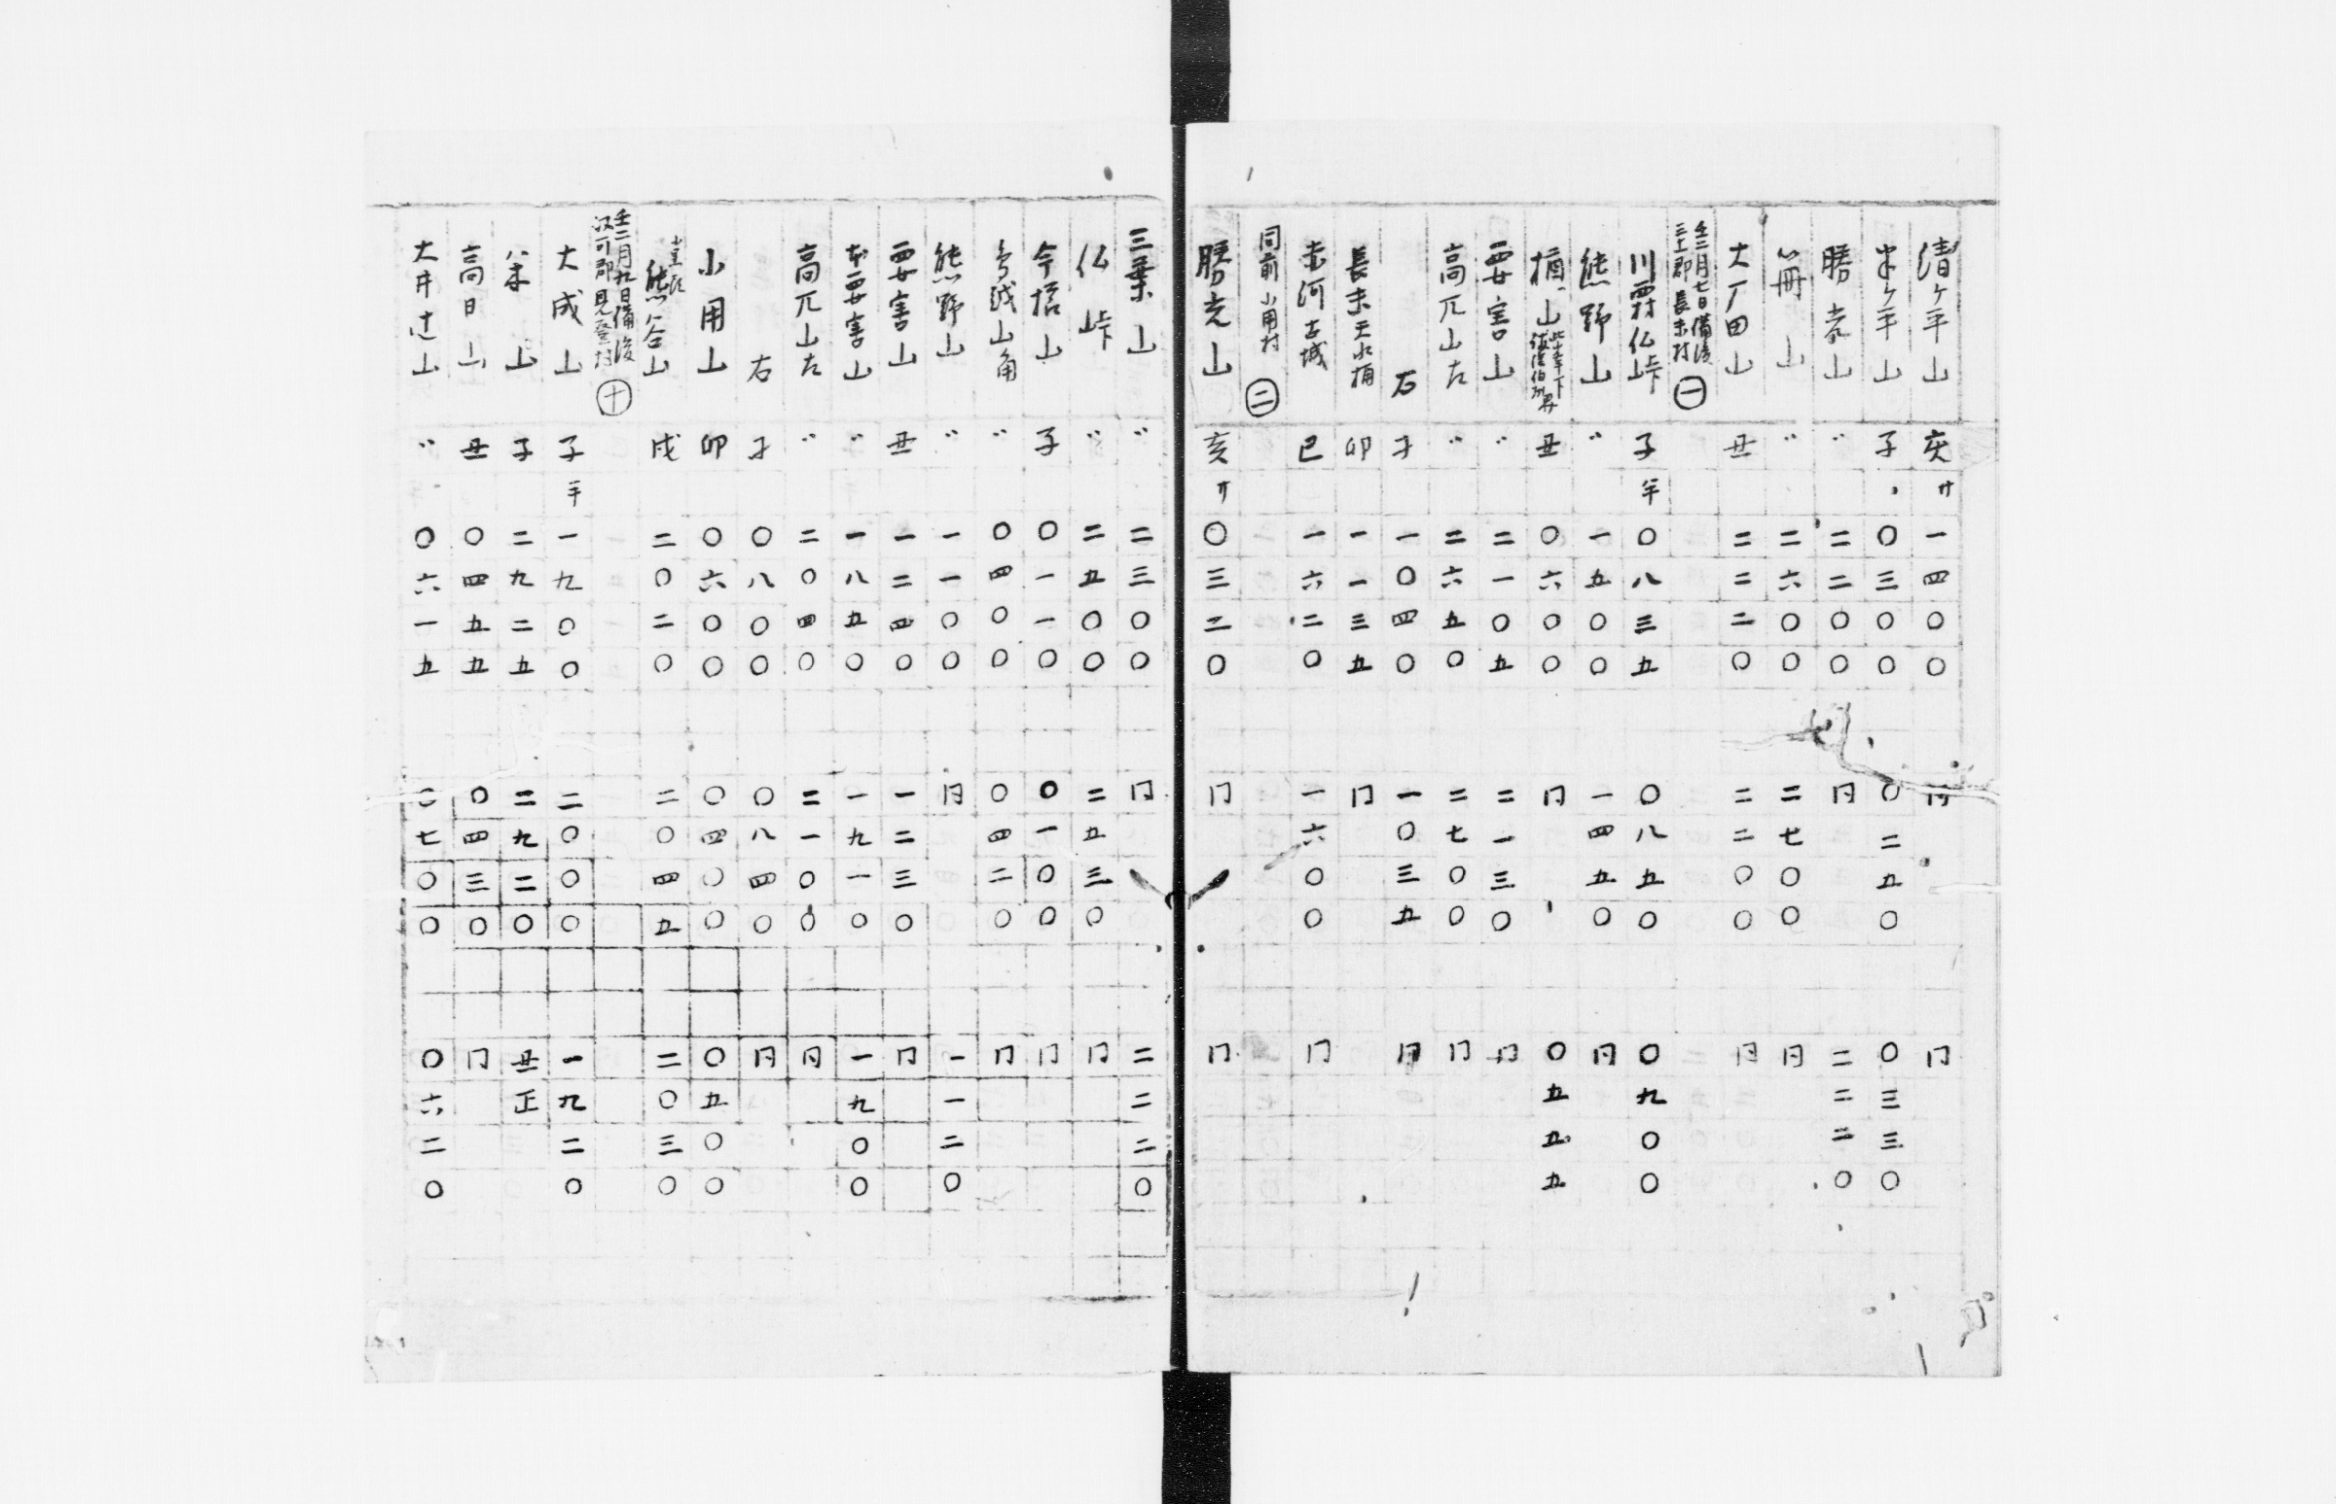 清ケ平山 亥 サ 一四〇〇 同 同
半ケ平山 子 〇三〇〇 〇二五〇 〇三三〇
勝光山 〃 二二〇〇 同 二二二〇
冊山 〃 二六〇〇 二七〇〇 同
大丁田山 丑 二二二〇 二二〇〇 同
壬二月七日備後三上郡長末村 一
川西村仏峠 子 半 〇八三五 〇八五〇 〇九〇〇
熊野山 〃 一五〇〇 一四五〇 同
山 丑 〇六〇〇 同 〇五五五
要害山 〃 二一〇五 二一三〇 同
高丌山左 〃 二六五〇 二七〇〇 同
右 子 一〇四〇 一〇三五 同
長末天水桶 卯 一一三五 同
赤河古城 巳 一六二〇 一六〇〇 同
同前 小用村 二
勝光山 亥 サ 〇三二〇 同 同
三葉山 〃 二三〇〇 同 二二二〇
仏峠 〃 二五〇〇 二五三〇 同
今櫃山 子 〇一一〇 〇一〇〇 同
山角 〃 〇四〇〇 〇四二〇 同
熊野山 〃 一一〇〇 同 一一二〇
要害山 丑 一二四〇 一二三〇 同
本要害山 〃 一八五〇 一九一〇 一九〇〇
高丌山左 〃 二〇四〇 二一〇〇 同
右 子 〇八〇〇 〇八四〇 同
小用山 卯 〇六〇〇 〇四〇〇 〇五〇〇
熊谷山 戌 二〇二〇 二〇四五 二〇三〇
壬二月九日備後奴可郡見登村 十
大成山 子 半 一九〇〇 二〇〇〇 一九二〇
山 子 二九二五 二九二〇 丑正
高日山 丑 〇四五五 〇四三〇 同
大井辻山 〃 〇六一五 〇七〇〇 〇六二〇